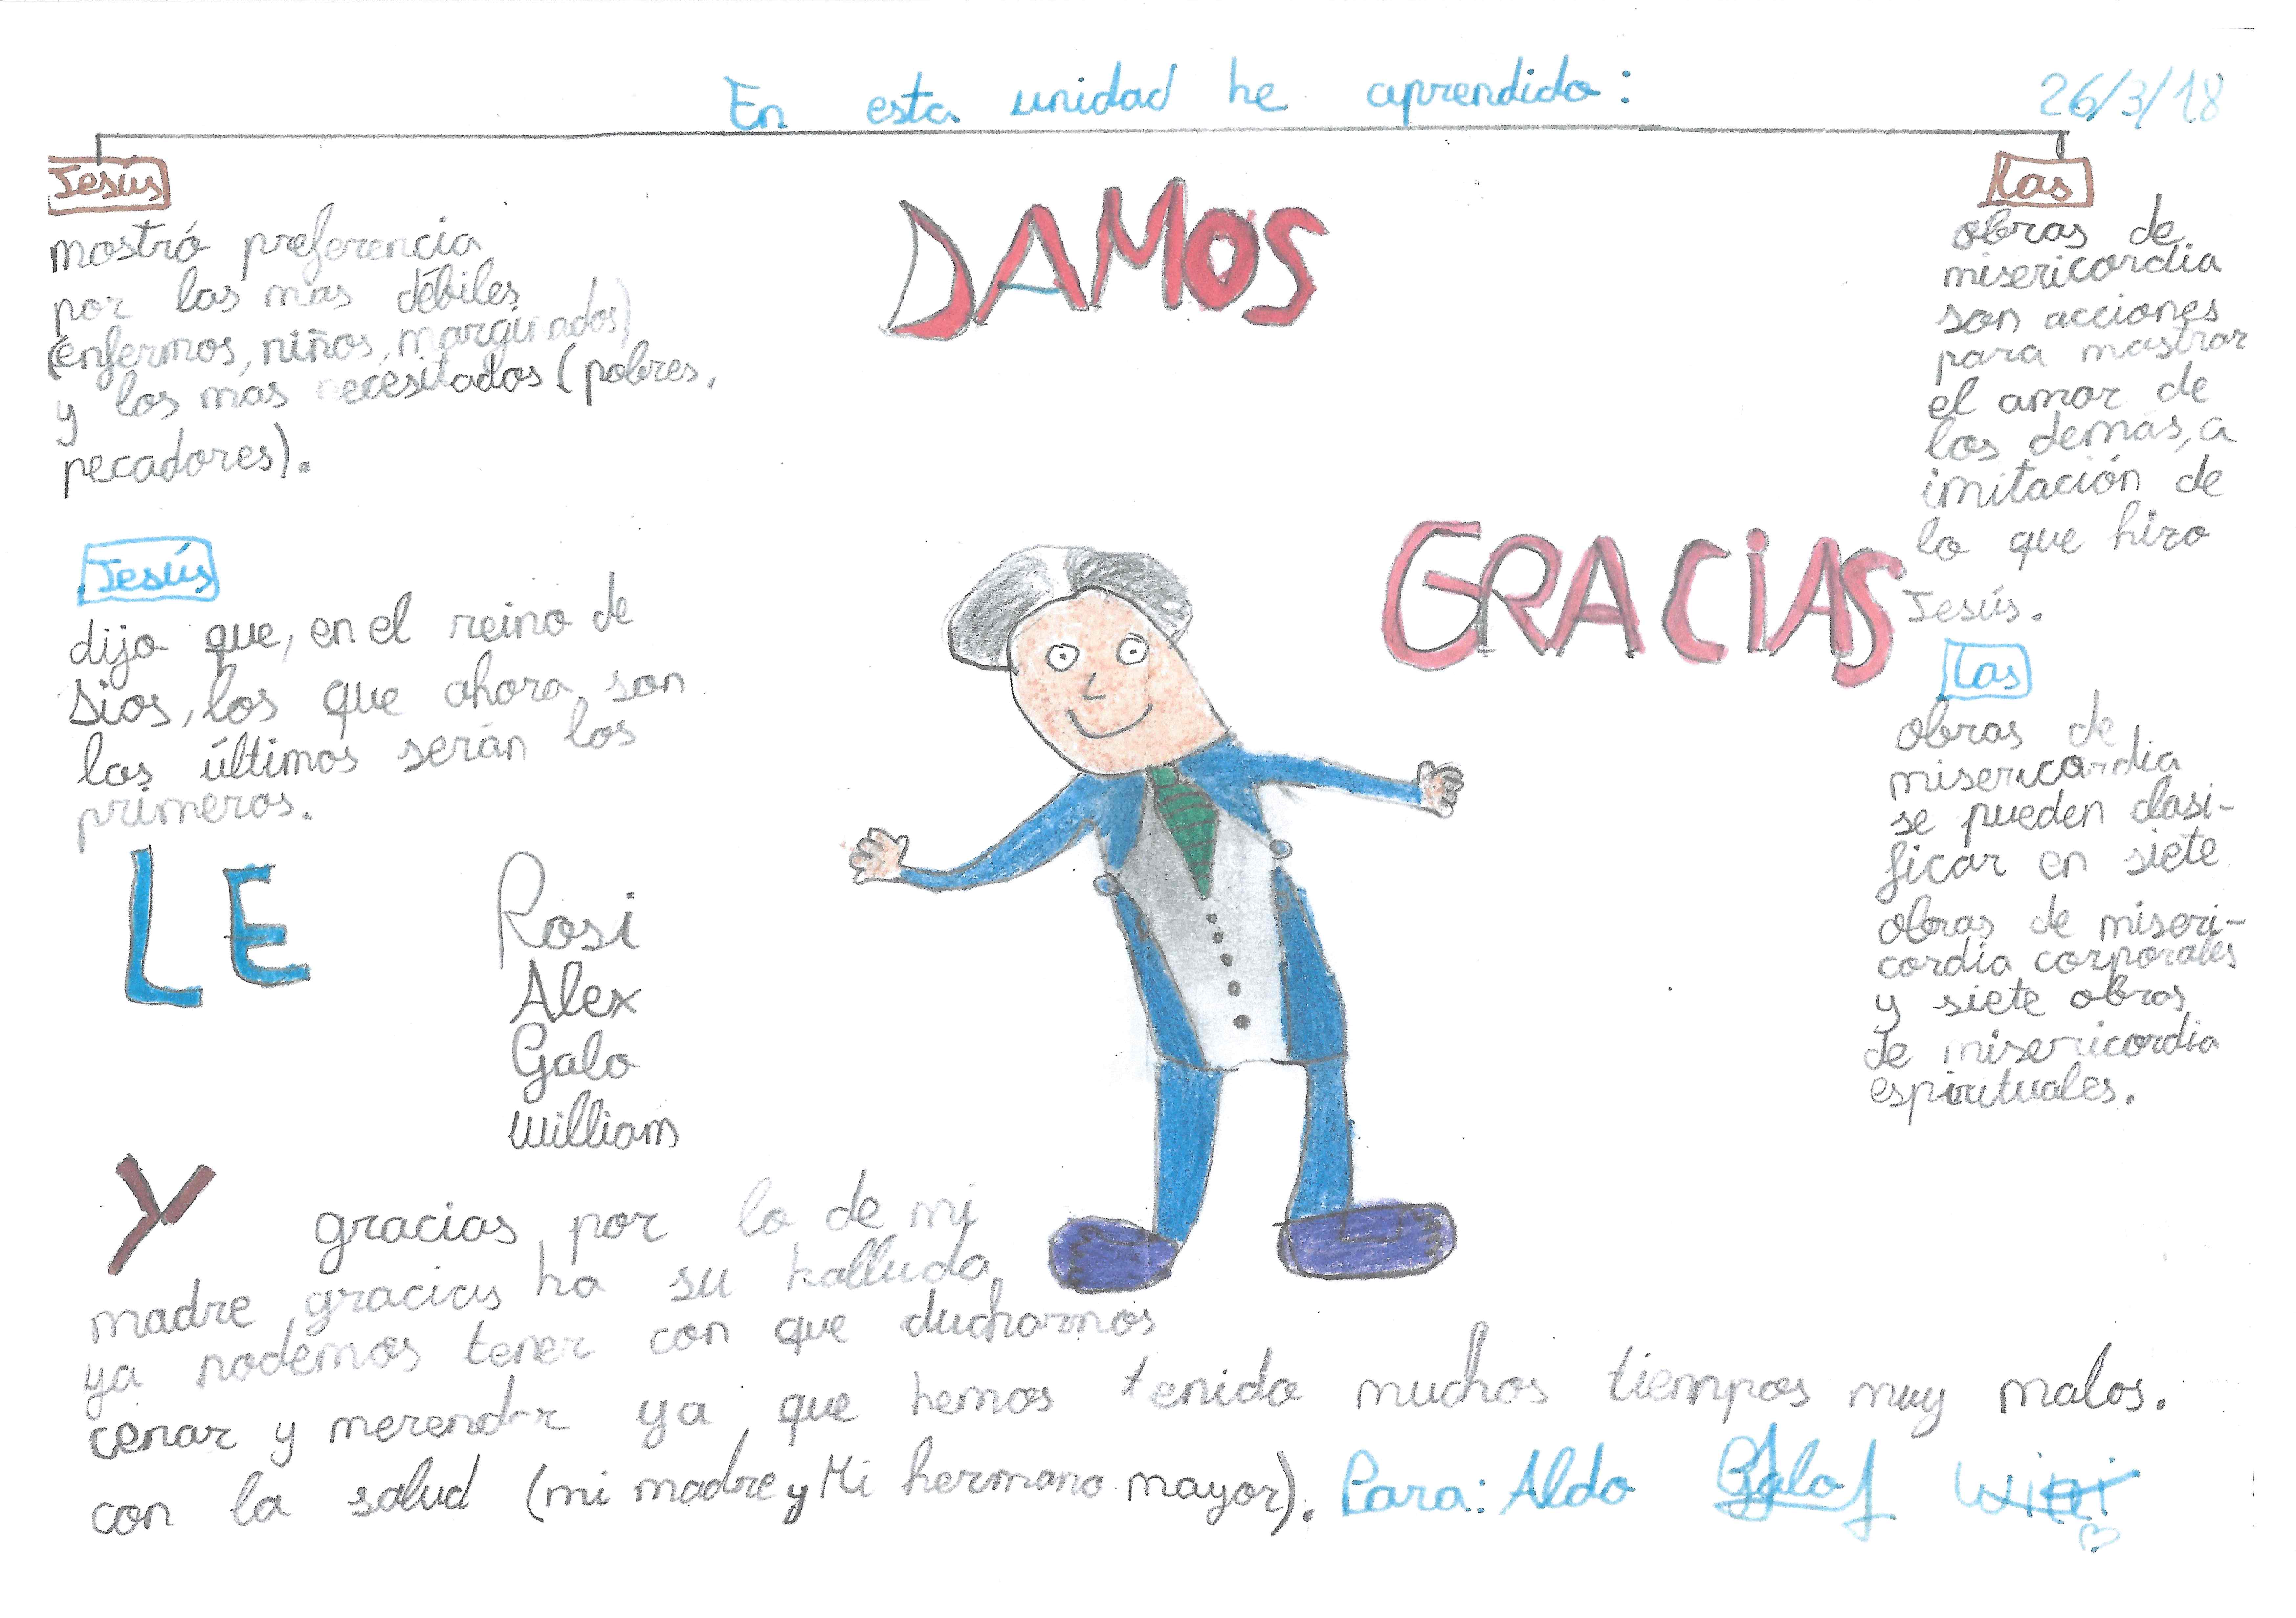 En esta unidad he aprendido:
26/3/18
Jesús
mostró preferencia
por los mas débiles
(enfermos, niños, marginados)
y los mas necesitados (pobres,
pecadores).
Jesús
dijo que, en el reino de
Dios, los que ahora son
los últimos serán los
primeros.
DAMOS
GRACIAS
Las
obras de
misericordia
son acciones
para mostrar
el amor de
los demás, a
imitación de
lo que hizo
Jesús.
Las
obras de
misericordia
se pueden clasi-
ficar en siete
obras de miseri-
cordia corporales
y siete obras
de misericordia
espirituales.
LE
Rosi
Alex
Galo
William
Y gracias por lo de mi
madre gracias ha su halluda
ya podemos tener con que ducharnos
cenar y merendar ya que hemos tenido muchos tiempos muy malos.
con la salud (mi madre y Mi hermano mayor). Para: Aldo Galo